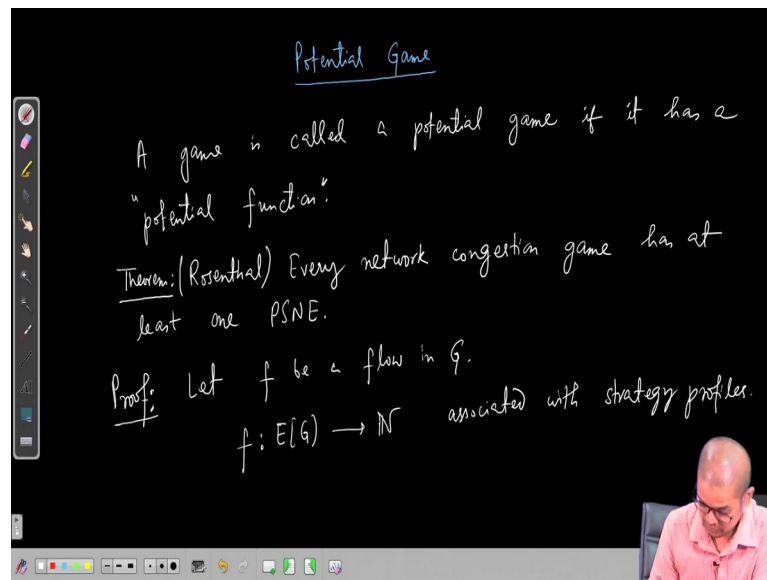 Potential Game
A game is called a potential game if it has a
"potential function".
Theorem: (Rosenthal) Every network congestion game has at
least one PSNE.
Proof: Let f be a flow in G.
f: E[G] → ℕ associated with strategy profiles.